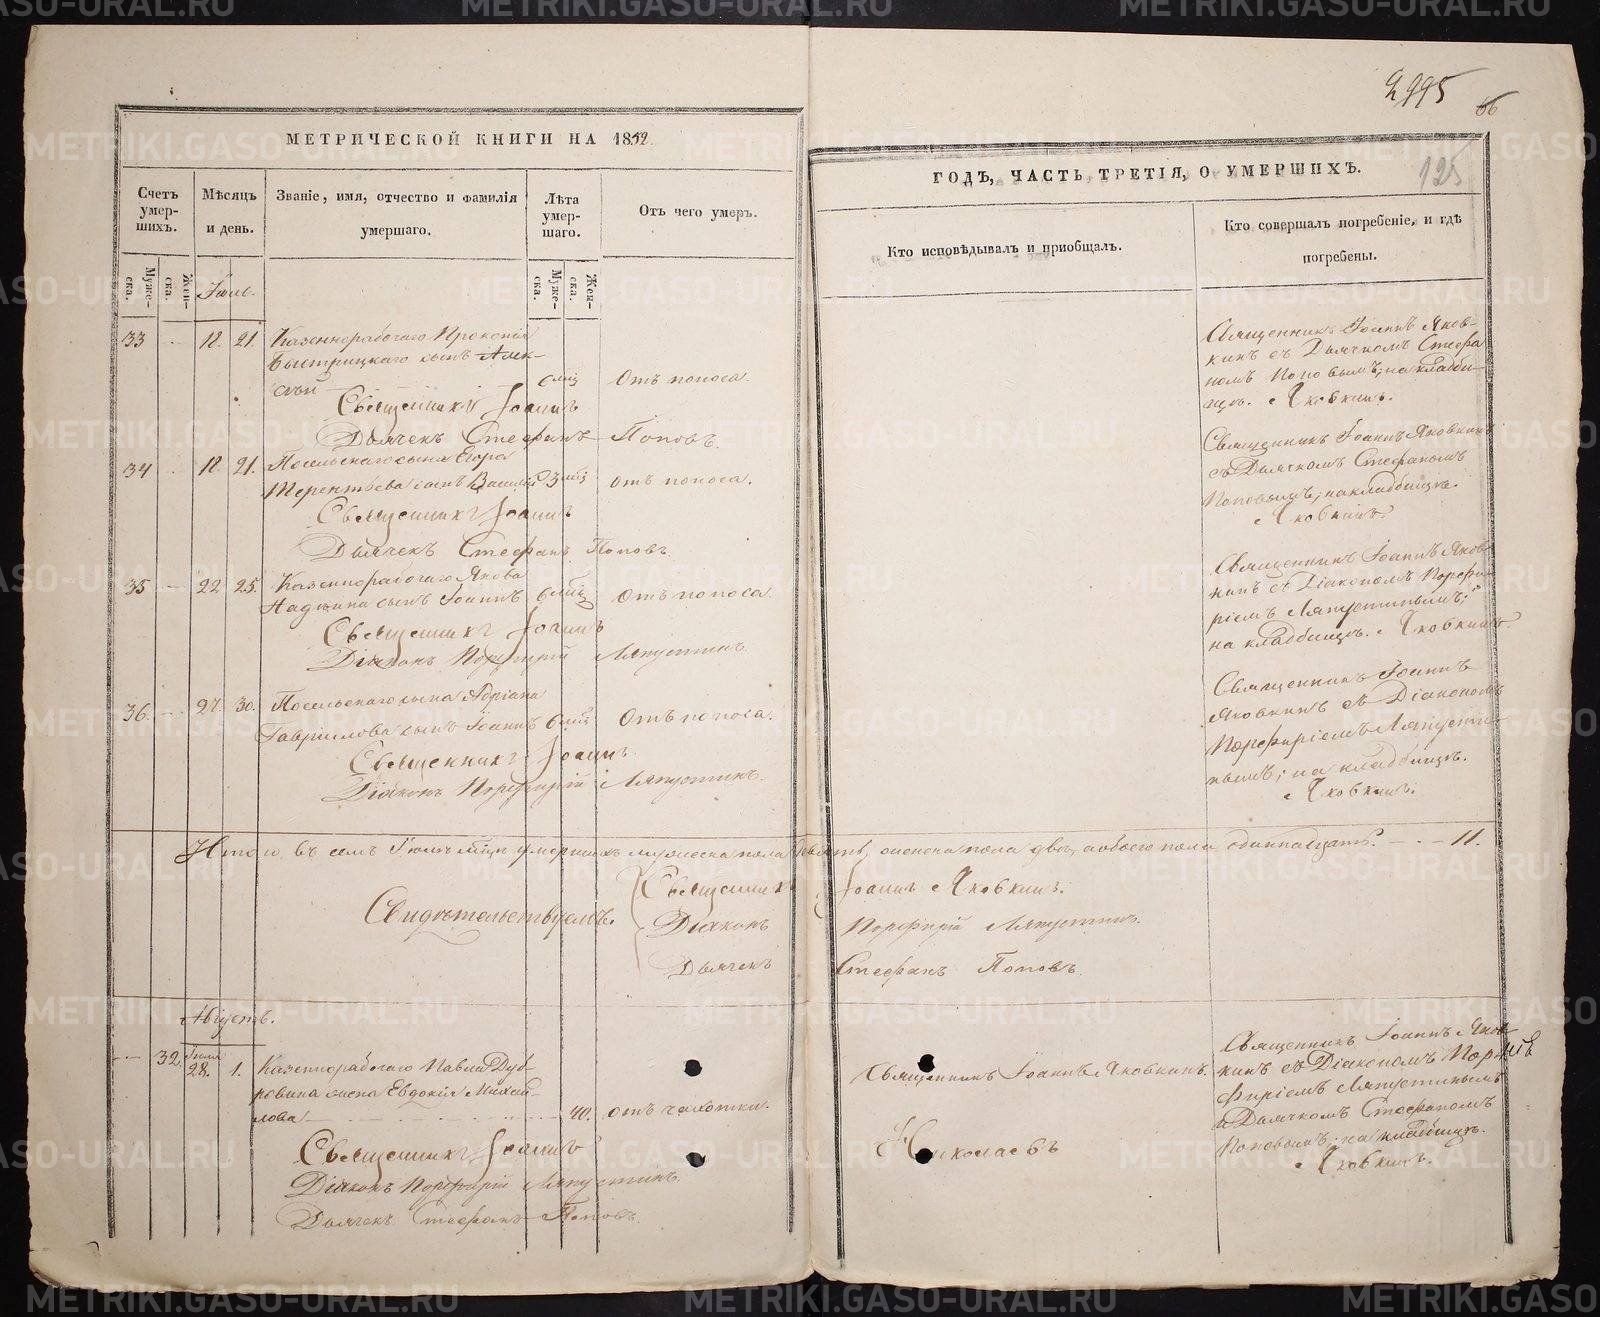 2995
66
125
МЕТРИЧЕСКОЙ КНИГИ НА 1852.
ГОДЪ, ЧАСТЬ ТРЕТІЯ, О УМЕРШИХЪ.
Счетъ умер-шихъ.
Мѣсяцъ и день.
Званіе, имя, отчество и фамилія умершаго.
Лѣта умер-шаго.
Отъ чего умеръ.
Кто исповѣдывалъ и пріобщалъ.
Кто совершалъ погребеніе, и гдѣ погребены.
Муже-ска.
Жен-ска.
Муже-ска.
Жен-ска.
Іюль.
33 18. 21. Казеннорабочаго Прокопія
Быстрицкаго сынъ Алек-
сѣй 6 мѣц Отъ поноса.
Священникъ Іоаннъ
Дьячекъ Стефанъ Поповъ.
Священникъ Іоаннъ Яков-
кинъ съ Дьячкомъ Стефа
номъ Поповымъ; на кладби-
щѣ. Яковкинъ.
34 18 21. Посельскаго сына Егора
Терентьева сынъ Василій 3 мѣц отъ поноса.
Священникъ Іоаннъ
Дьячекъ Стефанъ Поповъ
Священникъ Іоаннъ Яковкинъ
съ Дьячкомъ Стефаномъ
Поповымъ; на кладбищѣ.
Яковкинъ.
35 22 25. Казеннорабочаго Якова
сынъ Іоаннъ 6 мѣц Отъ поноса.
Священникъ Іоаннъ
Діаконъ Порфирій Ляпустинъ.
Священникъ Іоаннъ Яков-
кинъ съ Діакономъ Порфи-
ріемъ Ляпустинымъ;
на кладбищѣ. Яковкинъ.
36. 27. 30. Посельскаго сына Адріана
Гаврилова сынъ Іоаннъ 6 мѣц Отъ поноса.
Священникъ Іоаннъ
Діаконъ Порфирій Ляпустинъ.
Священникъ Іоаннъ
Яковкинъ съ Діакономъ
Порфиріемъ Ляпусти-
нымъ; на кладбищѣ.
Яковкинъ.
Итого въ семъ Іюлѣ мѣцѣ умершихъ мужеска пола девять, женска пола двѣ, а обоего пола одиннадцать. 11.
Свидѣтельствуемъ.
Священникъ Іоаннъ Яковкинъ.
Діаконъ Порфирій Ляпустинъ.
Дьячекъ Стефанъ Поповъ.
Августъ.
32. Іюля 28. 1. Казеннорабочаго Павла Дуб-
ровина жена Евдокія Михай-
лова 40. отъ чахотки.
Священникъ Іоаннъ
Діаконъ Порфирій Ляпустинъ.
Дьячекъ Стефанъ Поповъ.
Священникъ Іоаннъ Яковкинъ.
Николаевъ
Священникъ Іоаннъ Яков-
кинъ съ Діакономъ Пор-
фиріемъ Ляпустинымъ
и Дьячкомъ Стефаномъ
Поповымъ; на кладбищѣ.
Яковкинъ.
METRIKI.GASO-URAL.RU